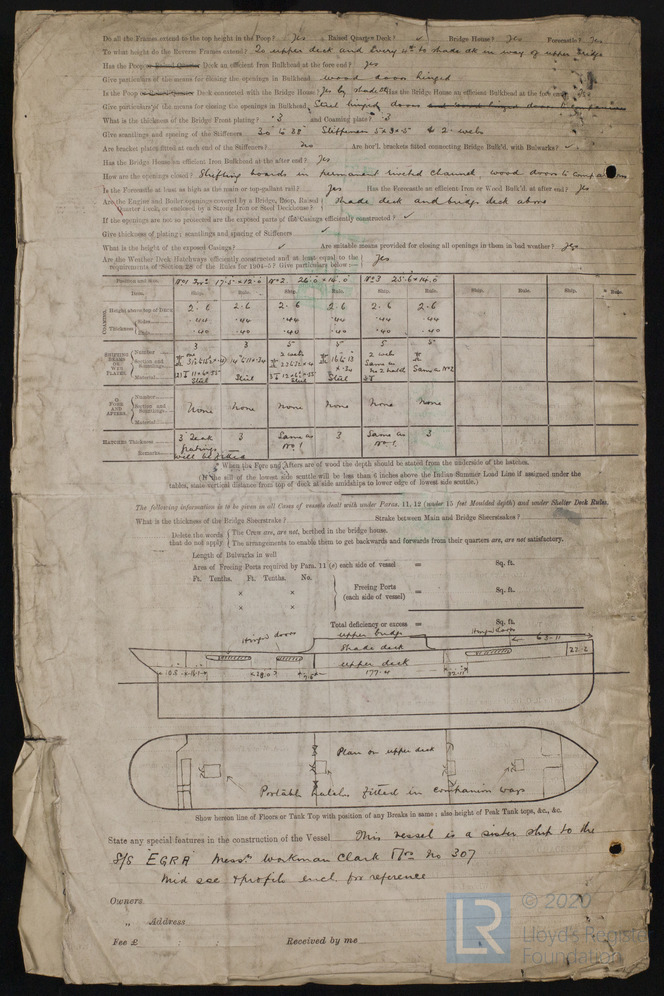 Do all the Frames extend to the top height in the Poop? Yes Raised Quarter Deck? ✓ Bridge House? Yes Forecastle? Yes
To what height do the Reverse Frames extend? To upper deck and every 4th to shade dk in way of upper Bridge
Has the Poop or Raised Quarter Deck an efficient Iron Bulkhead at the fore end? Yes
Give particulars of the means for closing the openings in Bulkhead wood doors hinged
Is the Poop or Raised Quarter Deck connected with the Bridge House? Yes by shade dk Has the Bridge House an efficient Bulkhead at the fore end? Yes
Give particulars of the means for closing the openings in Bulkhead Steel hinged doors and wood hinged doors to companions
What is the thickness of the Bridge Front plating? ·3 and Coaming plate? ·3
Give scantlings and spacing of the Stiffeners 30" to 38" Stiffeners 5 × 3 × ·5 & 2 webs
Are bracket plates fitted at each end of the Stiffeners? No Are hor'l. brackets fitted connecting Bridge Bulk'd. with Bulwarks? ✓
Has the Bridge House an efficient Iron Bulkhead at the after end? Yes
How are the openings closed? Shifting boards in permanent riveted channel, wood doors to companions
Is the Forecastle at least as high as the main or top-gallant rail? Yes Has the Forecastle an efficient Iron or Wood Bulk'd. at after end? Yes
Are the Engine and Boiler openings covered by a Bridge, Poop, Raised Quarter Deck, or enclosed by a Strong Iron or Steel Deckhouse? Shade deck and bridge deck above
If the openings are not so protected are the exposed parts of the Casings efficiently constructed? ✓
Give thickness of plating; scantlings and spacing of Stiffeners ✓
What is the height of the exposed Casings? ✓ Are suitable means provided for closing all openings in them in bad weather? Yes
Are the Weather Deck Hatchways efficiently constructed and at least equal to the requirements of Section 28 of the Rules for 1904-5? Give particulars below Yes
Position and Size. No 1 17·5 × 12·0 No 2 26·0 × 14·0 No 3 25·6 × 14·0
Item. Ship. Rule. Ship. Rule. Ship. Rule. Ship. Rule. Ship. Rule.
COAMING Height above top of Deck 2·6 2·6 2·6 2·6 2·6 2·6
Thickness Sides ·44 ·44 ·44 ·44 ·44 ·44
Ends ·40 ·40 ·40 ·40 ·40 ·40
SHIFTING BEAMS OR WEB PLATES Number 3 3 5 5 5 5
Section and Scantlings
Material Steel Steel Steel Steel
FORE AND AFTERS. Number
Section and Scantlings None None None None None None
Material
HATCHES Thickness 3 3 Same as No 1 3 Same as No 1 3
Remarks
When the Fore and Afters are of wood the depth should be stated from the underside of the hatches.
(If the sill of the lowest side scuttle will be less than 6 inches above the Indian Summer Load Line if assigned under the tables, state vertical distance from top of deck at side amidships to lower edge of lowest side scuttle.)
The following information is to be given in all Cases of vessels dealt with under Paras. 11, 12 (under 15 feet Moulded depth) and under Shelter Deck Rules.
What is the thickness of the Bridge Sheerstrake? Strake between Main and Bridge Sheerstrakes?
Delete the words that do not apply The Crew are, are not, berthed in the bridge house.
The arrangements to enable them to get backwards and forwards from their quarters are, are not satisfactory.
Length of Bulwarks in well
Area of Freeing Ports required by Para. 11 (e) each side of vessel = Sq. ft.
Ft. Tenths. Ft. Tenths. No.
× × Freeing Ports (each side of vessel) = Sq. ft.
× ×
Total deficiency or excess = Sq. ft.
Hinged doors upper bridge Hinged doors 63·11
Shade deck 22·2
upper deck
28·0 177·4
Plan on upper deck
Portable hatches fitted in companion ways
Show hereon line of Floors or Tank Top with position of any Breaks in same; also height of Peak Tank tops, &c., &c.
State any special features in the construction of the Vessel This vessel is a sister ship to the
S/S EGRA Messrs Workman Clark No 307
Mid sec & profile encl for reference
Owners
„ Address
Fee £ : : Received by me
LR © 2020
Lloyd's Register
Foundation